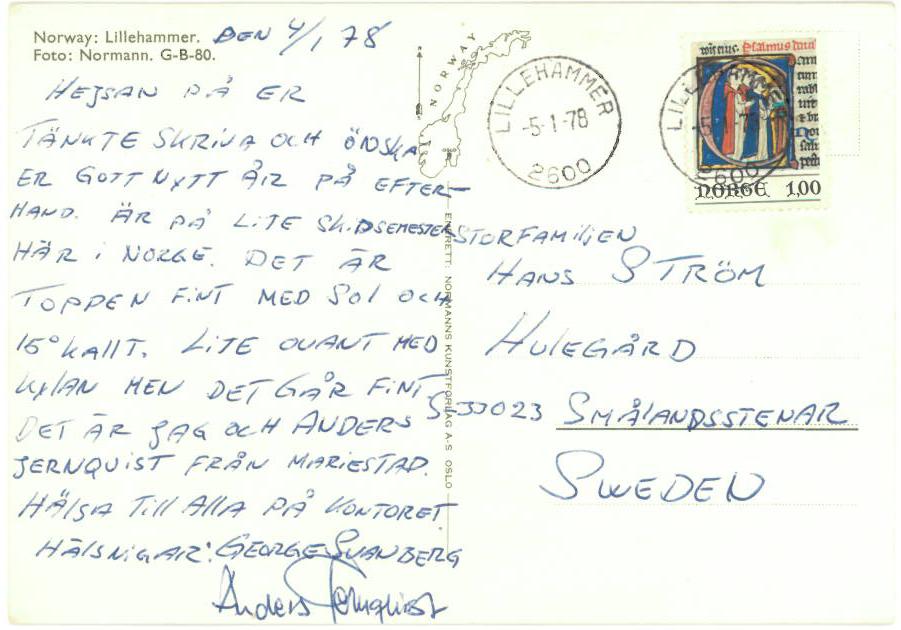 Norway: Lillehammer.
Foto: Normann. G-B-80.
DEN 4/1 78
HEJSAN PÅ ER
TÄNKTE SKRIVA OCH ÖNSKA
ER GOTT NYTT ÅR PÅ EFTER-
HAND. ÄR PÅ LITE SKIDSEMESTER
HÄR I NORGE. DET ÄR
TOPPEN FINT MED SOL OCH
15° KALLT. LITE OVANT MED
KYLAN MEN DET GÅR FINT
DET ÄR JAG OCH ANDERS
JERNQUIST FRÅN MARIESTAD.
HÄLSA TILL ALLA PÅ KONTORET.
HÄLSNIGAR: GEORGE SVANBERG
Anders Jernquist
NORWAY
ENERETT: NORMANNS KUNSTFORLAG A-S OSLO
LILLEHAMMER
-5-1-78
2600
LILLEHAMMER
2600
Psalmus
NORGE 1,00
STORFAMILJEN
HANS STRÖM
HULEGÅRD
S-33023 SMÅLANDSSTENAR
SWEDEN